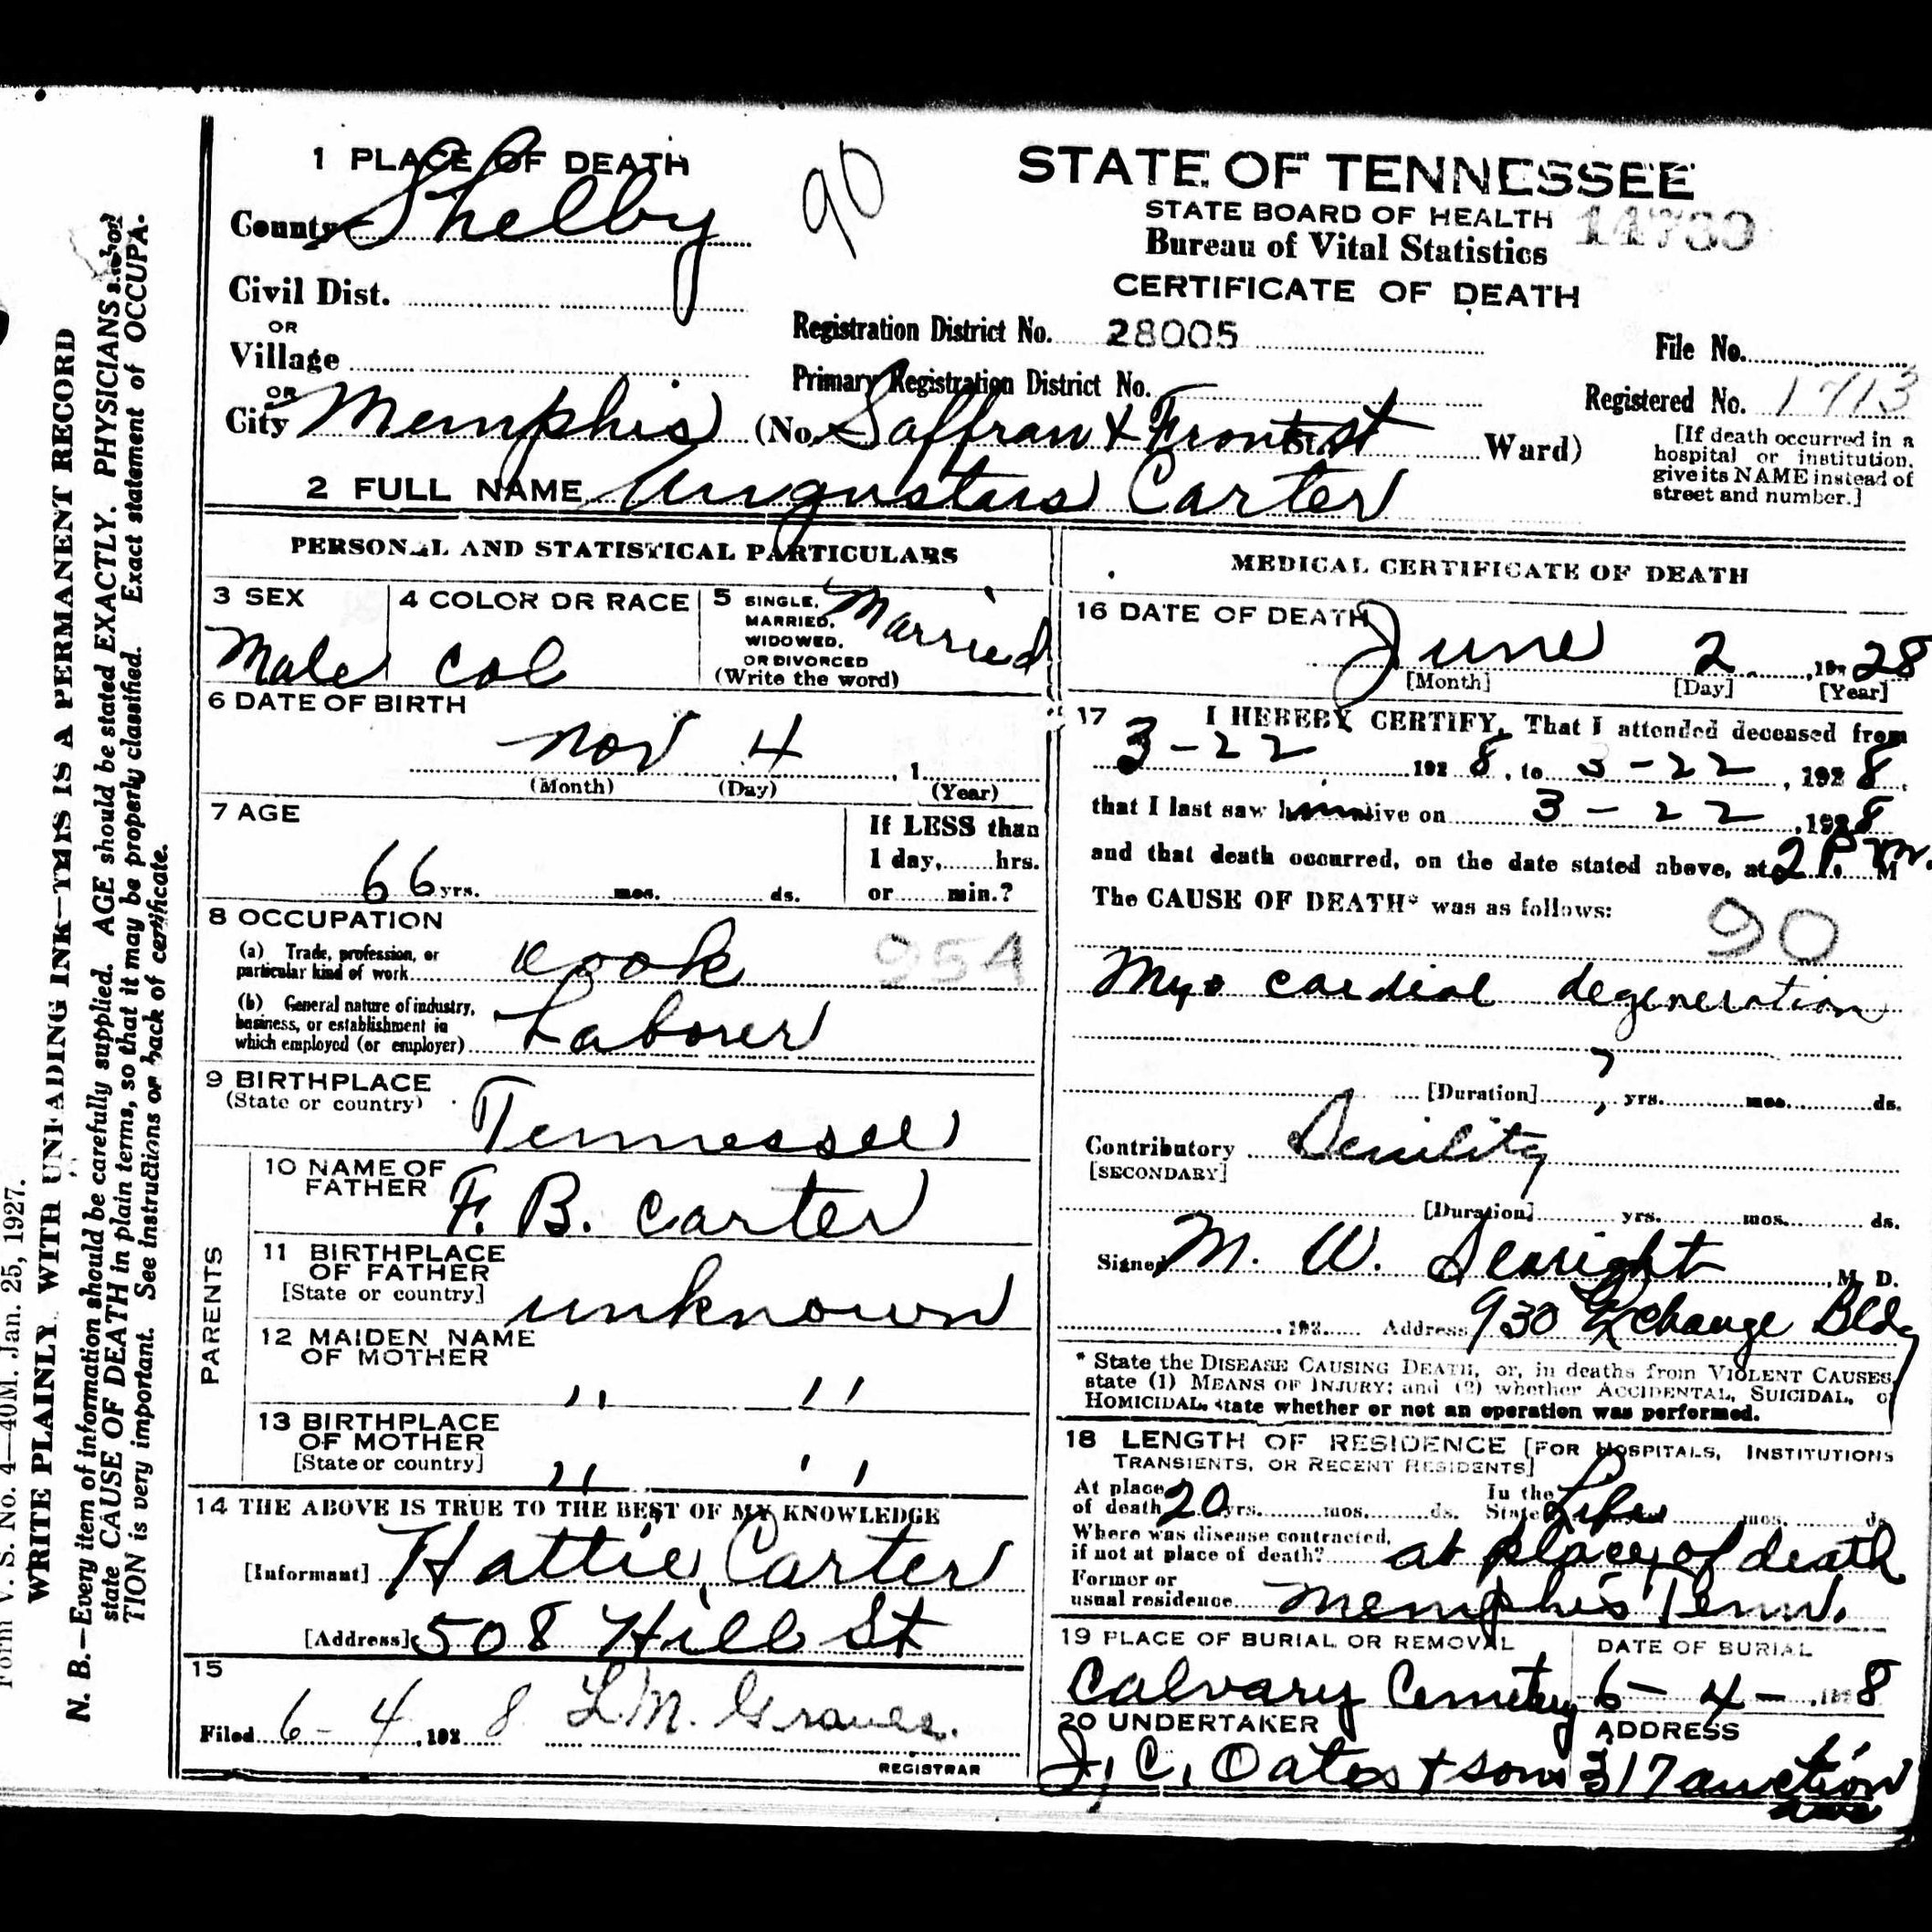 1 PLACE OF DEATH
County Shelby
90
Civil Dist.
OR
Village
OR
City Memphis (No. Saffran & Front St St. Ward)
2 FULL NAME Augustus Carter
STATE OF TENNESSEE
STATE BOARD OF HEALTH
Bureau of Vital Statistics
CERTIFICATE OF DEATH
Registration District No. 28005
Primary Registration District No.
File No.
Registered No. 1713
[If death occurred in a
hospital or institution,
give its NAME instead of
street and number.]
PERSONAL AND STATISTICAL PARTICULARS
3 SEX
Male
4 COLOR OR RACE
Col
5 SINGLE,
MARRIED,
WIDOWED,
OR DIVORCED
(Write the word)
Married
6 DATE OF BIRTH
Nov 4 , 1
(Month) (Day) (Year)
7 AGE
66 yrs. mos. ds.
If LESS than
1 day, hrs.
or min.?
8 OCCUPATION
(a) Trade, profession, or
particular kind of work Cook
954
(b) General nature of industry,
business, or establishment in
which employed (or employer) Laborer
9 BIRTHPLACE
(State or country) Tennessee
PARENTS
10 NAME OF
FATHER F. B. Carter
11 BIRTHPLACE
OF FATHER
[State or country] unknown
12 MAIDEN NAME
OF MOTHER
" "
13 BIRTHPLACE
OF MOTHER
[State or country] " "
14 THE ABOVE IS TRUE TO THE BEST OF MY KNOWLEDGE
[Informant] Hattie Carter
[Address] 508 Hill St
15
Filed 6-4, 1928 L.M. Graves.
REGISTRAR
MEDICAL CERTIFICATE OF DEATH
16 DATE OF DEATH
June 2, 1928
[Month] [Day] [Year]
17 I HEREBY CERTIFY, That I attended deceased from
3-22 1928, to 3-22, 1928,
that I last saw him alive on 3-22, 1928
and that death occurred, on the date stated above, at 2 P. m. M
The CAUSE OF DEATH* was as follows:
90
Myo cardial degeneration
[Duration] ? yrs. mos. ds.
Contributory Senility
[SECONDARY]
[Duration] yrs. mos. ds.
Signed M. W. Searight, M. D.
, 192 Address 930 Exchange Bldg
* State the DISEASE CAUSING DEATH, or, in deaths from VIOLENT CAUSES,
state (1) MEANS OF INJURY; and (2) whether ACCIDENTAL, SUICIDAL, or
HOMICIDAL, state whether or not an operation was performed.
18 LENGTH OF RESIDENCE [FOR HOSPITALS, INSTITUTIONS
TRANSIENTS, OR RECENT RESIDENTS]
At place
of death 20 yrs. mos. ds.
In the
State Life mos. ds.
Where was disease contracted,
if not at place of death? at place of death
Former or
usual residence Memphis Tenn.
19 PLACE OF BURIAL OR REMOVAL
Calvary Cemetery
DATE OF BURIAL
6-4-, 1928
20 UNDERTAKER
J. C. Oates & sons
ADDRESS
317 auction
ave
Form V. S. No. 4—40M. Jan. 25, 1927.
WRITE PLAINLY WITH UNFADING INK—THIS IS A PERMANENT RECORD
N. B.—Every item of information should be carefully supplied. AGE should be stated EXACTLY. PHYSICIANS should
state CAUSE OF DEATH in plain terms, so that it may be properly classified. Exact statement of OCCUPA-
TION is very important. See instructions on back of certificate.